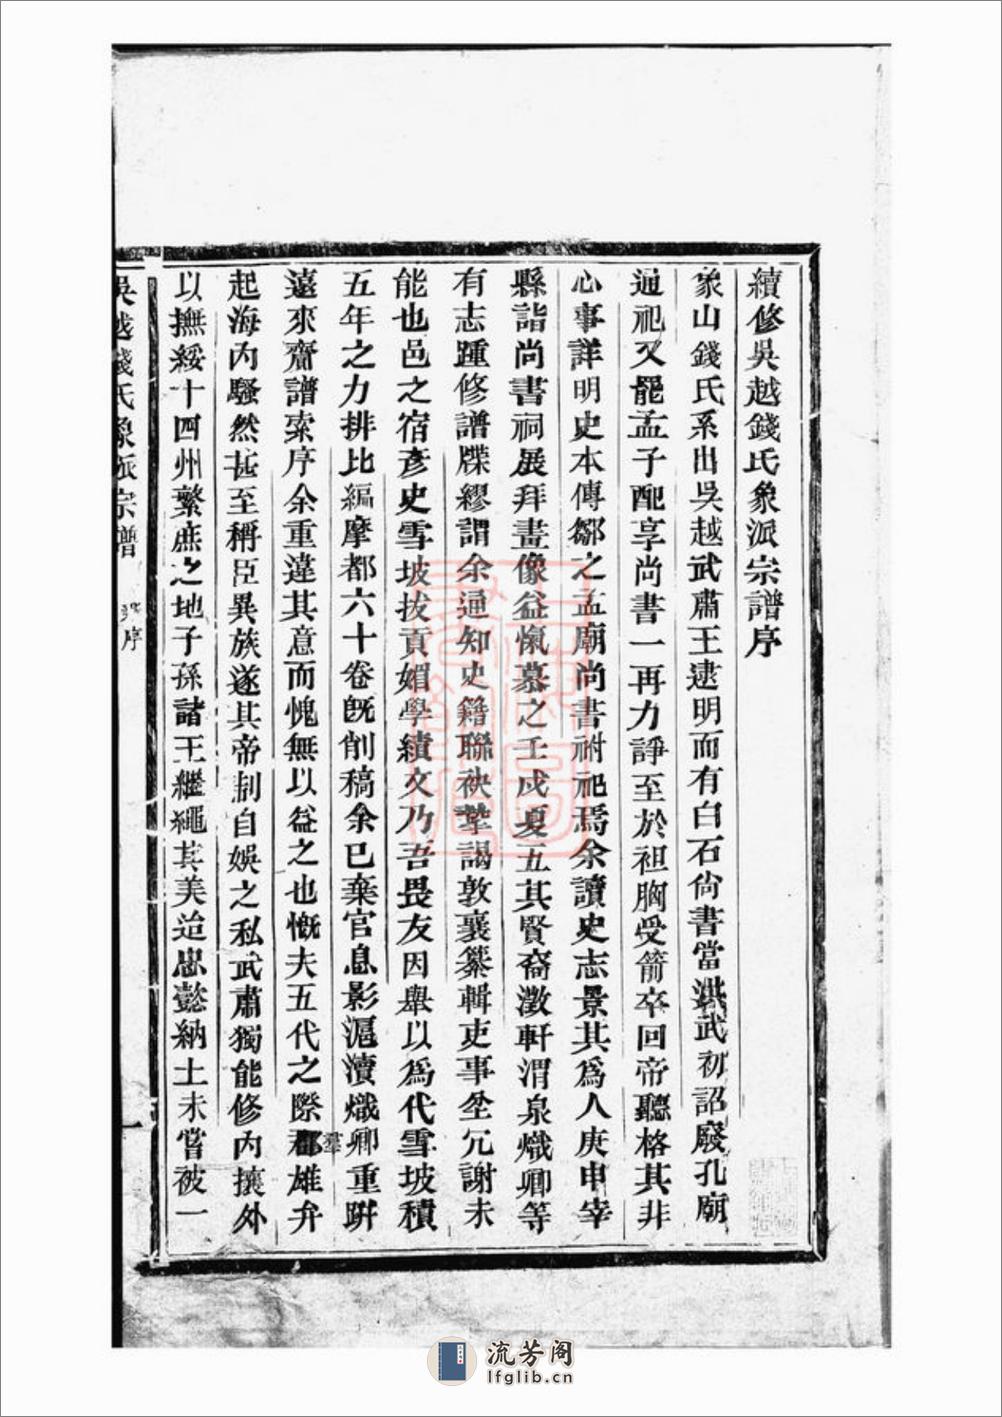 續修吳越錢氏象派宗譜序
象山錢氏系出吳越武肅王逮明而有白石尙書當洪武初詔廢孔廟
通祀又罷孟子配享尚書一再力諍至於袒胸受箭卒回帝聽格其非
心事詳明史本傳鄒之孟廟尚書祔祀焉余讀史志景其爲人庚申宰
縣詣尚書祠展拜畫像益愾慕之壬戌夏五其賢裔澂軒渭泉熾卿等
有志踵修譜牒繆謂余通知史籍聯袂摰謁敦襄纂輯吏事坌冗謝未
能也邑之宿彥史雪坡拔貢媚學績文乃吾畏友因舉以爲代雪坡積
五年之力排比編摩都六十卷旣削稿余已棄官息影滬瀆熾卿重跰
遠來齎譜索序余重違其意而愧無以益之也慨夫五代之際羣雄弁
起海內騷然甚至稱臣異族遂其帝制自娛之私武肅獨能修內攘外
以撫綏十四州繁庶之地子孫諸王繼繩其美迨忠懿納土未嘗被一
吳越錢氏象派宗譜
序
一
流芳阁
lfglib.cn